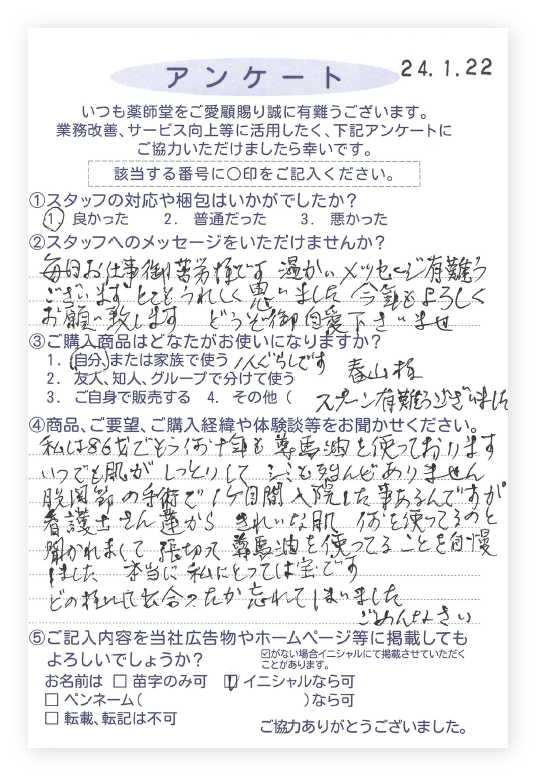 アンケート
24.1.22
いつも薬師堂をご愛顧賜り誠に有難うございます。
業務改善、サービス向上等に活用したく、下記アンケートに
ご協力いただけましたら幸いです。
該当する番号に○印をご記入ください。
①スタッフの対応や梱包はいかがでしたか?
1. 良かった 2. 普通だった 3. 悪かった
②スタッフへのメッセージをいただけませんか?
毎日お仕事御苦労様です 温かいメッセージ有難う
ございます とてもうれしく思いました 今年もよろしく
お願い致します どうぞ御自愛下さいませ
③ご購入商品はどなたがお使いになりますか?
1. 自分、または家族で使う 1人ぐらしです
春山様
2. 友人、知人、グループで分けて使う
3. ご自身で販売する 4. その他(
スプーン有難うございました
④商品、ご要望、ご購入経緯や体験談等をお聞かせください。
私は86才でもう何十年も尊馬油を使っております
いつでも肌がしっとりして シミも殆んどありません
股関節の手術で1ケ月間入院した事あるんですが
看護士さん達から きれいな肌 何を使ってるのと
聞かれまくて 張切って 尊馬油を使ってることを自慢
しました 本当に私にとっては宝です
どの様にして出会ったか忘れてしまいました
ごめんなさい
⑤ご記入内容を当社広告物やホームページ等に掲載しても
よろしいでしょうか?
☑がない場合イニシャルにて掲載させていただく
ことがあります。
お名前は □ 苗字のみ可 ☑ イニシャルなら可
□ ペンネーム( )なら可
□ 転載、転記は不可
ご協力ありがとうございました。